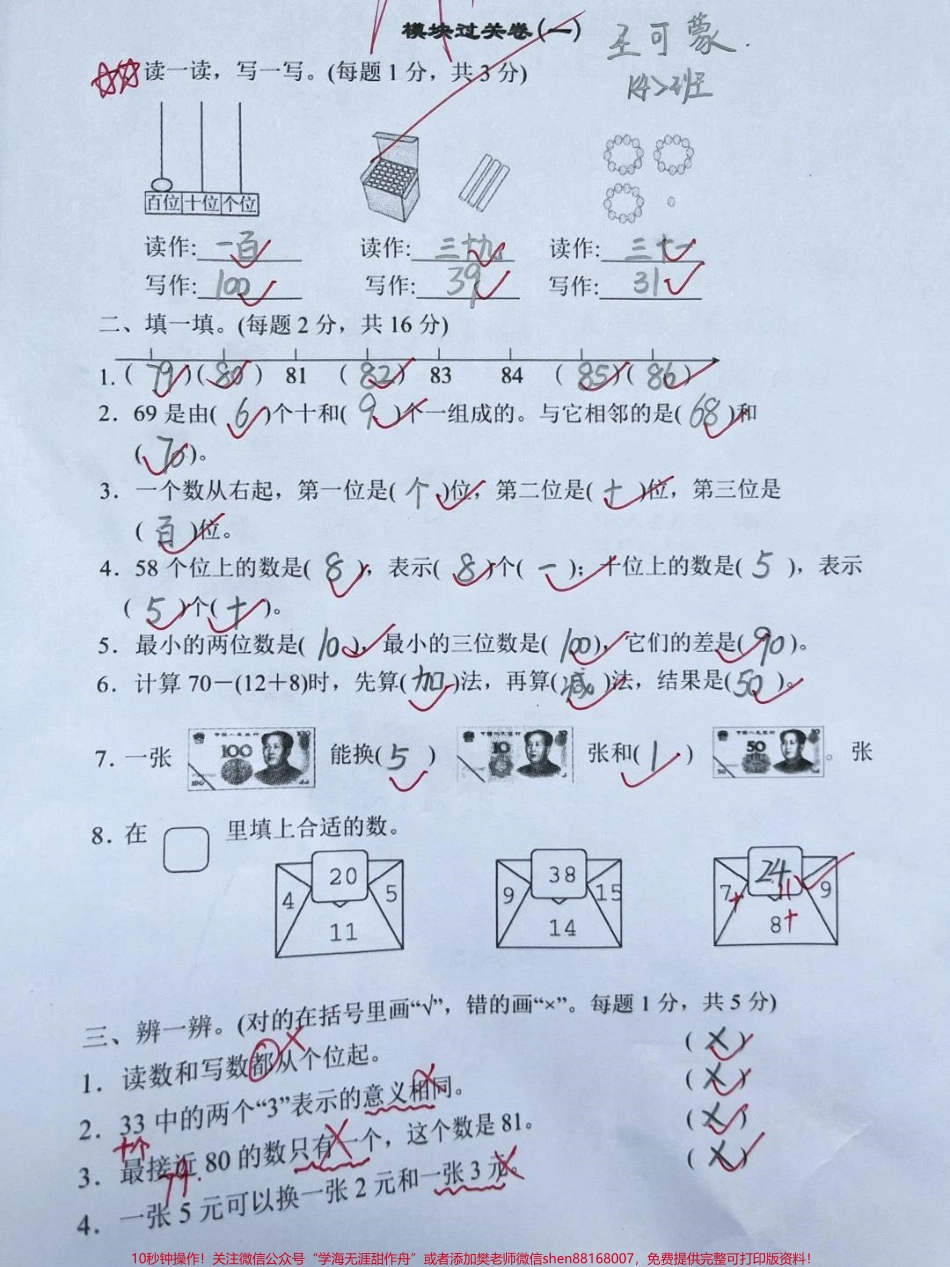 模块过关卷(一)
王可蒙
1<4>班
读一读，写一写。(每题1分，共3分)
百位 十位 个位
读作: 一百 读作: 三十九 读作: 三十一
写作: 100 写作: 39 写作: 31
二、填一填。(每题2分，共16分)
1.( 79 )( 80 ) 81 ( 82 ) 83 84 ( 85 )( 86 )
2. 69是由( 6 )个十和( 9 )个一组成的。与它相邻的是( 68 )和
( 70 )。
3. 一个数从右起，第一位是( 个 )位，第二位是( 十 )位，第三位是
( 百 )位。
4. 58个位上的数是( 8 )，表示( 8 )个( 一 )；十位上的数是( 5 )，表示
( 5 )个( 十 )。
5. 最小的两位数是( 10 )，最小的三位数是( 100 )，它们的差是( 90 )。
6. 计算70－(12＋8)时，先算( 加 )法，再算( 减 )法，结果是( 50 )。
7. 一张 100 能换( 5 ) 10 张和( 1 ) 50 。张
8. 在 里填上合适的数。
20 38 24
4 5 9 15 7 + 11 9
11 14 8 +
三、辨一辨。(对的在括号里画“√”，错的画“×”。每题1分，共5分)
1. 读数和写数都从个位起。 ( × )
2. 33中的两个“3”表示的意义相同。 ( × )
十个
3. 最接近80的数只有一个，这个数是81。 ( × )
79.
4. 一张5元可以换一张2元和一张3元。 ( × )
10秒钟操作！关注微信公众号“学海无涯甜作舟”或者添加樊老师微信shen88168007，免费提供完整可打印版资料！